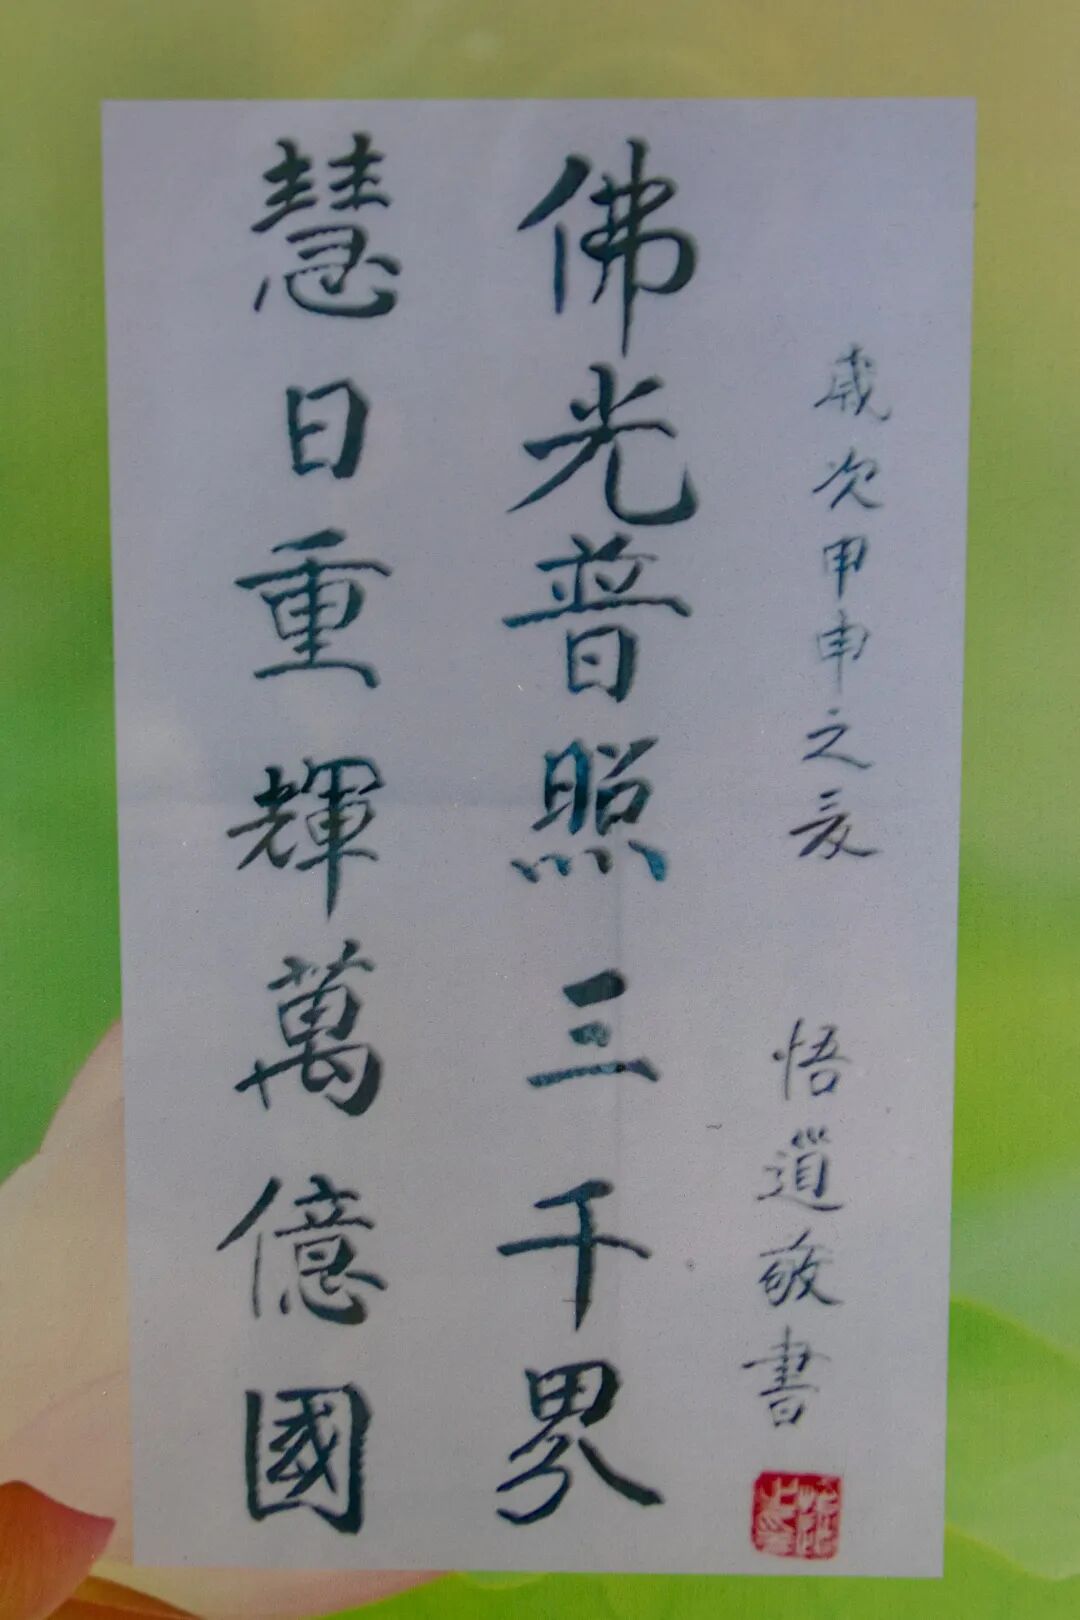 歲次甲申之夏
悟道敬書
佛光普照三千界
慧日重輝萬億國